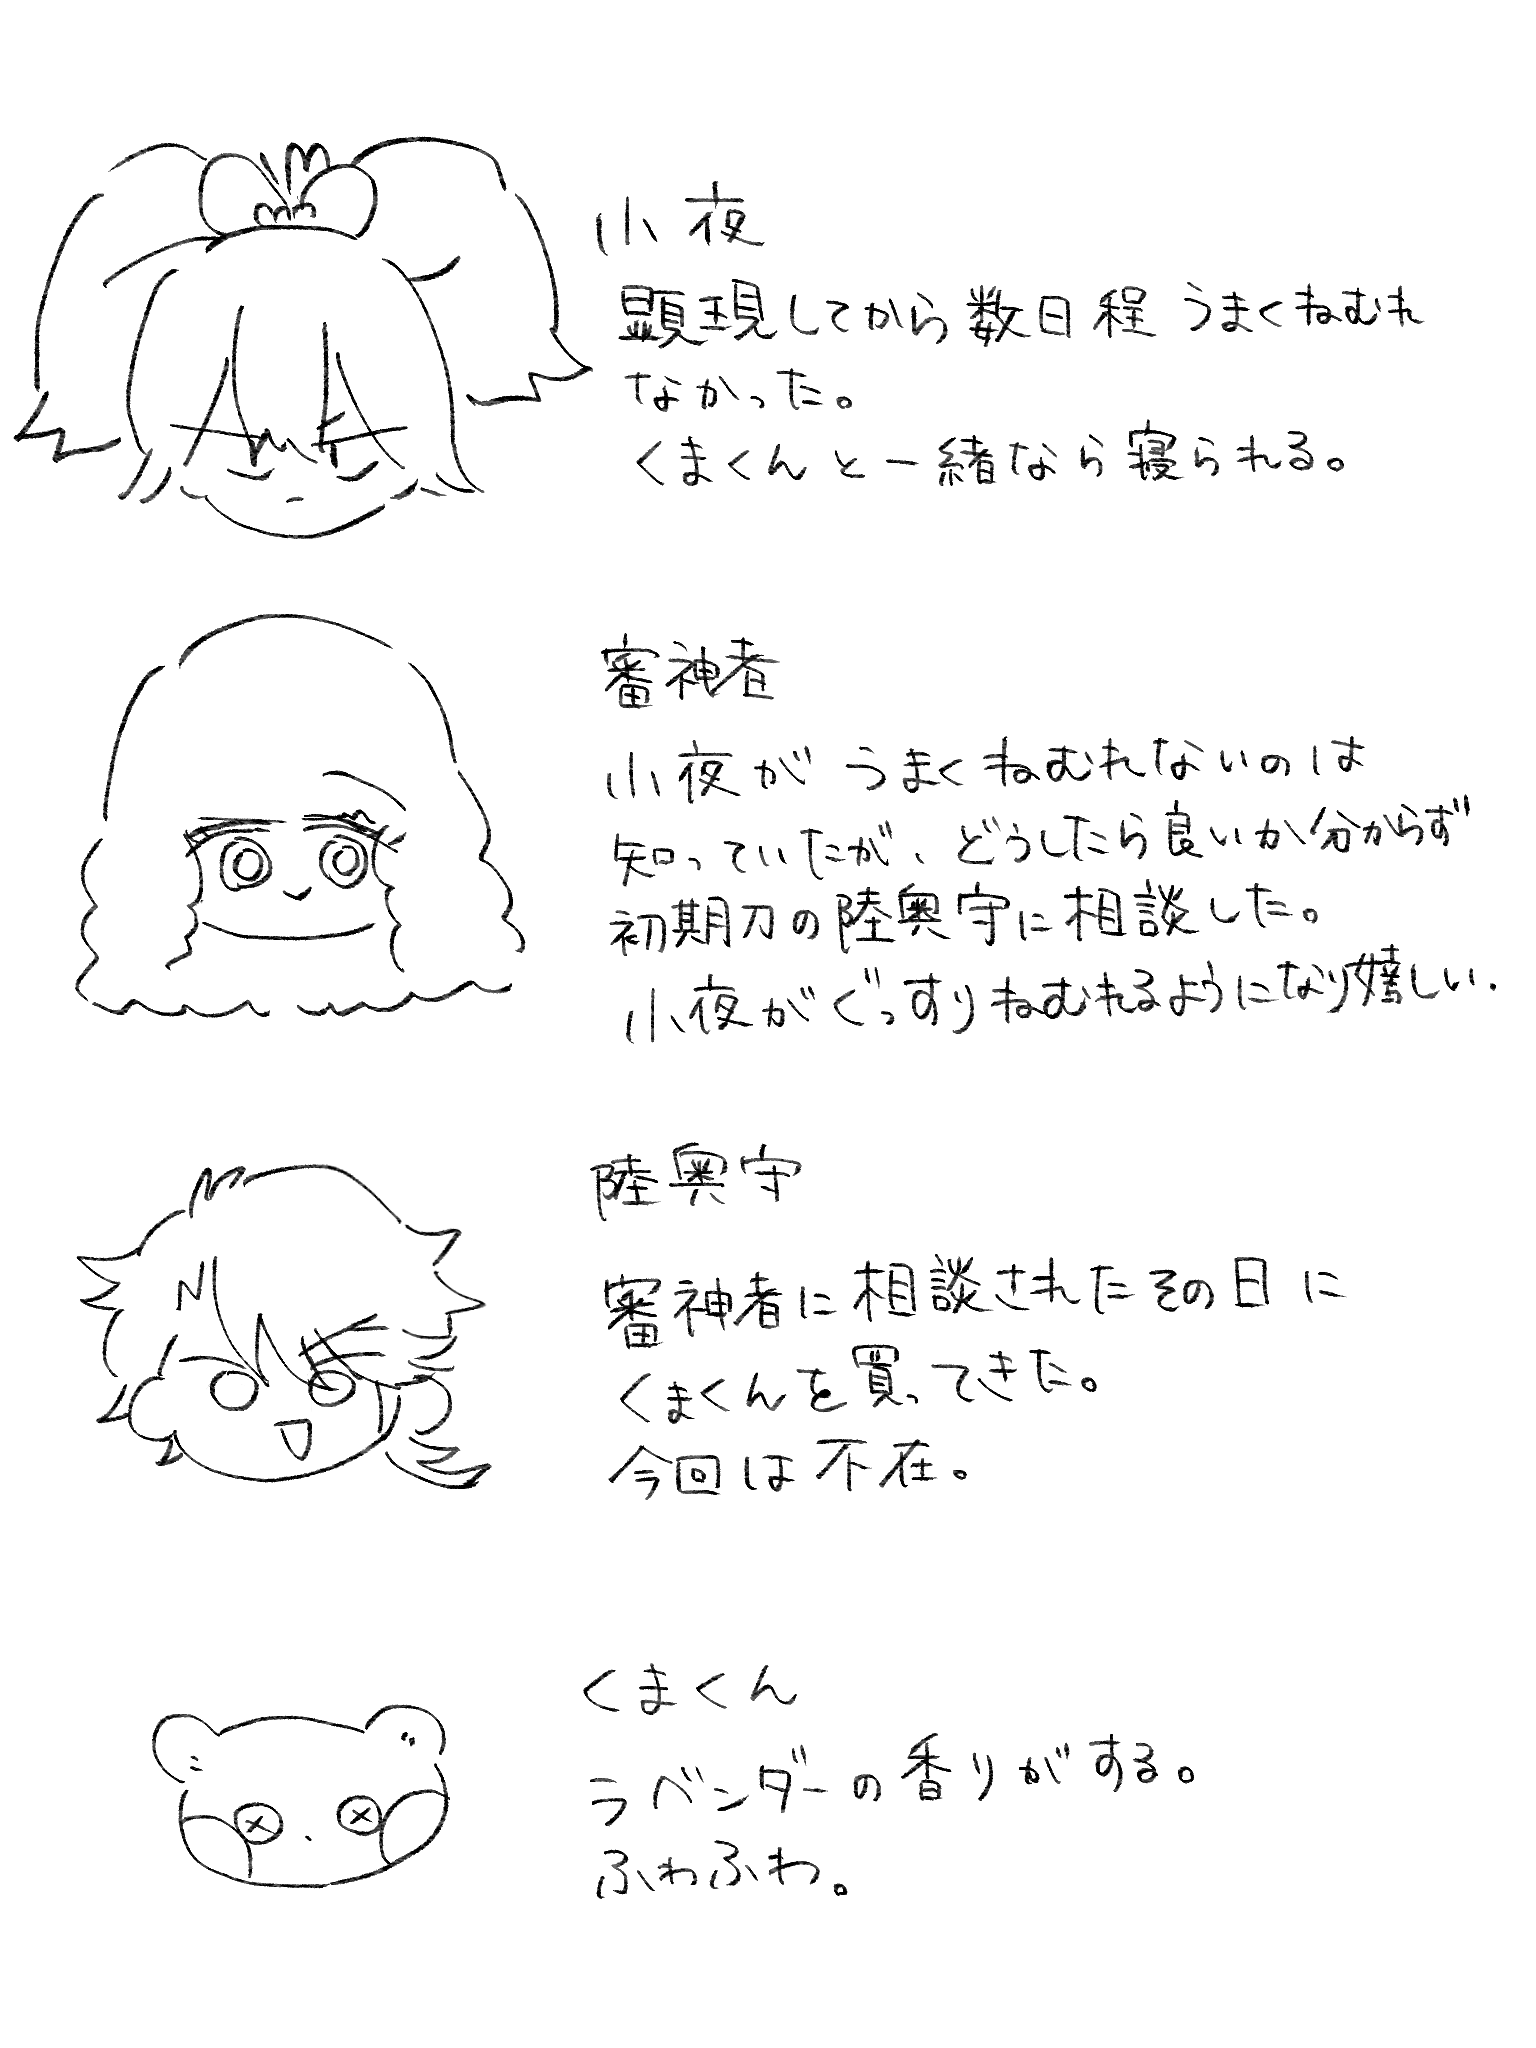 小夜
顕現してから数日程 うまくねむれ
なかった。
くまくんと一緒なら寝られる。
審神者
小夜が うまくねむれないのは
知っていたが、どうしたら良いか分からず
初期刀の陸奥守に相談した。
小夜がぐっすりねむれるようになり嬉しい.
陸奥守
審神者に相談されたその日に
くまくんを買ってきた。
今回は不在。
くまくん
ラベンダーの香りがする。
ふわふわ。